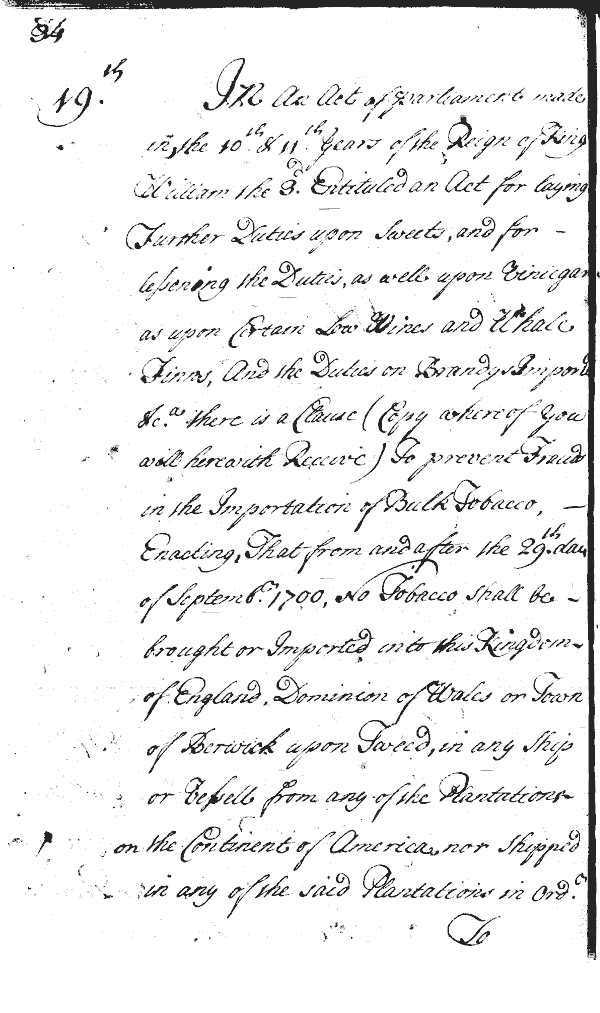 34
19.th
In An Act of Parliament made
in the 10th & 11th Years of the Reign of King
William the 3d. Entituled an Act for laying
Further Duties upon Sweets, and for –
lessening the Duties, as well upon Vinegar
as upon Certain Low Wines and Whale
Finns, And the Duties on Brandys Import
&c.a there is a Clause (Copy whereof You
will herewith Receive) To prevent Frauds
in the Importation of Bulk Tobacco, –
Enacting, That from and after the 29th. day
of Septemb.r 1700, No Tobacco shall be –
brought or Imported into this Kingdom
of England, Dominion of Wales or Town
of Berwick upon Tweed, in any Ship
or Vessell from any of the Plantations
on the Continent of America, nor Shipped
in any of the said Plantations in Ord.r
To